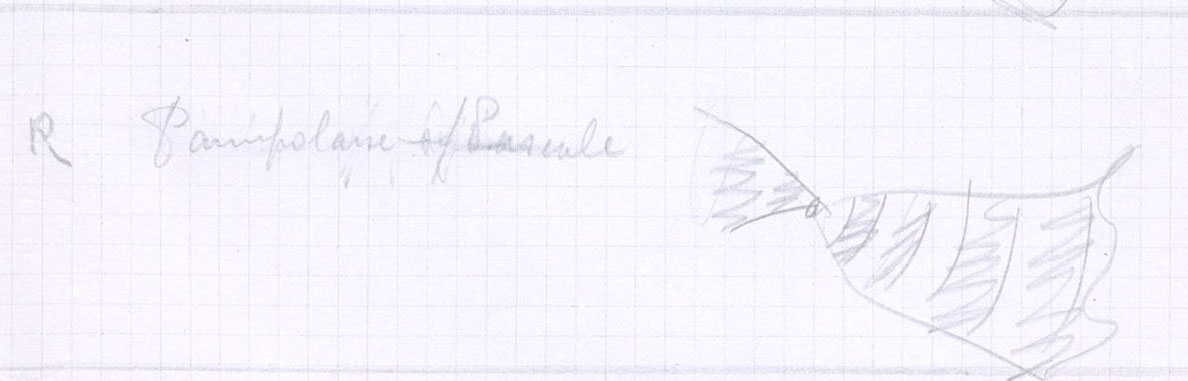 R Paimpolaise s/ Bascule